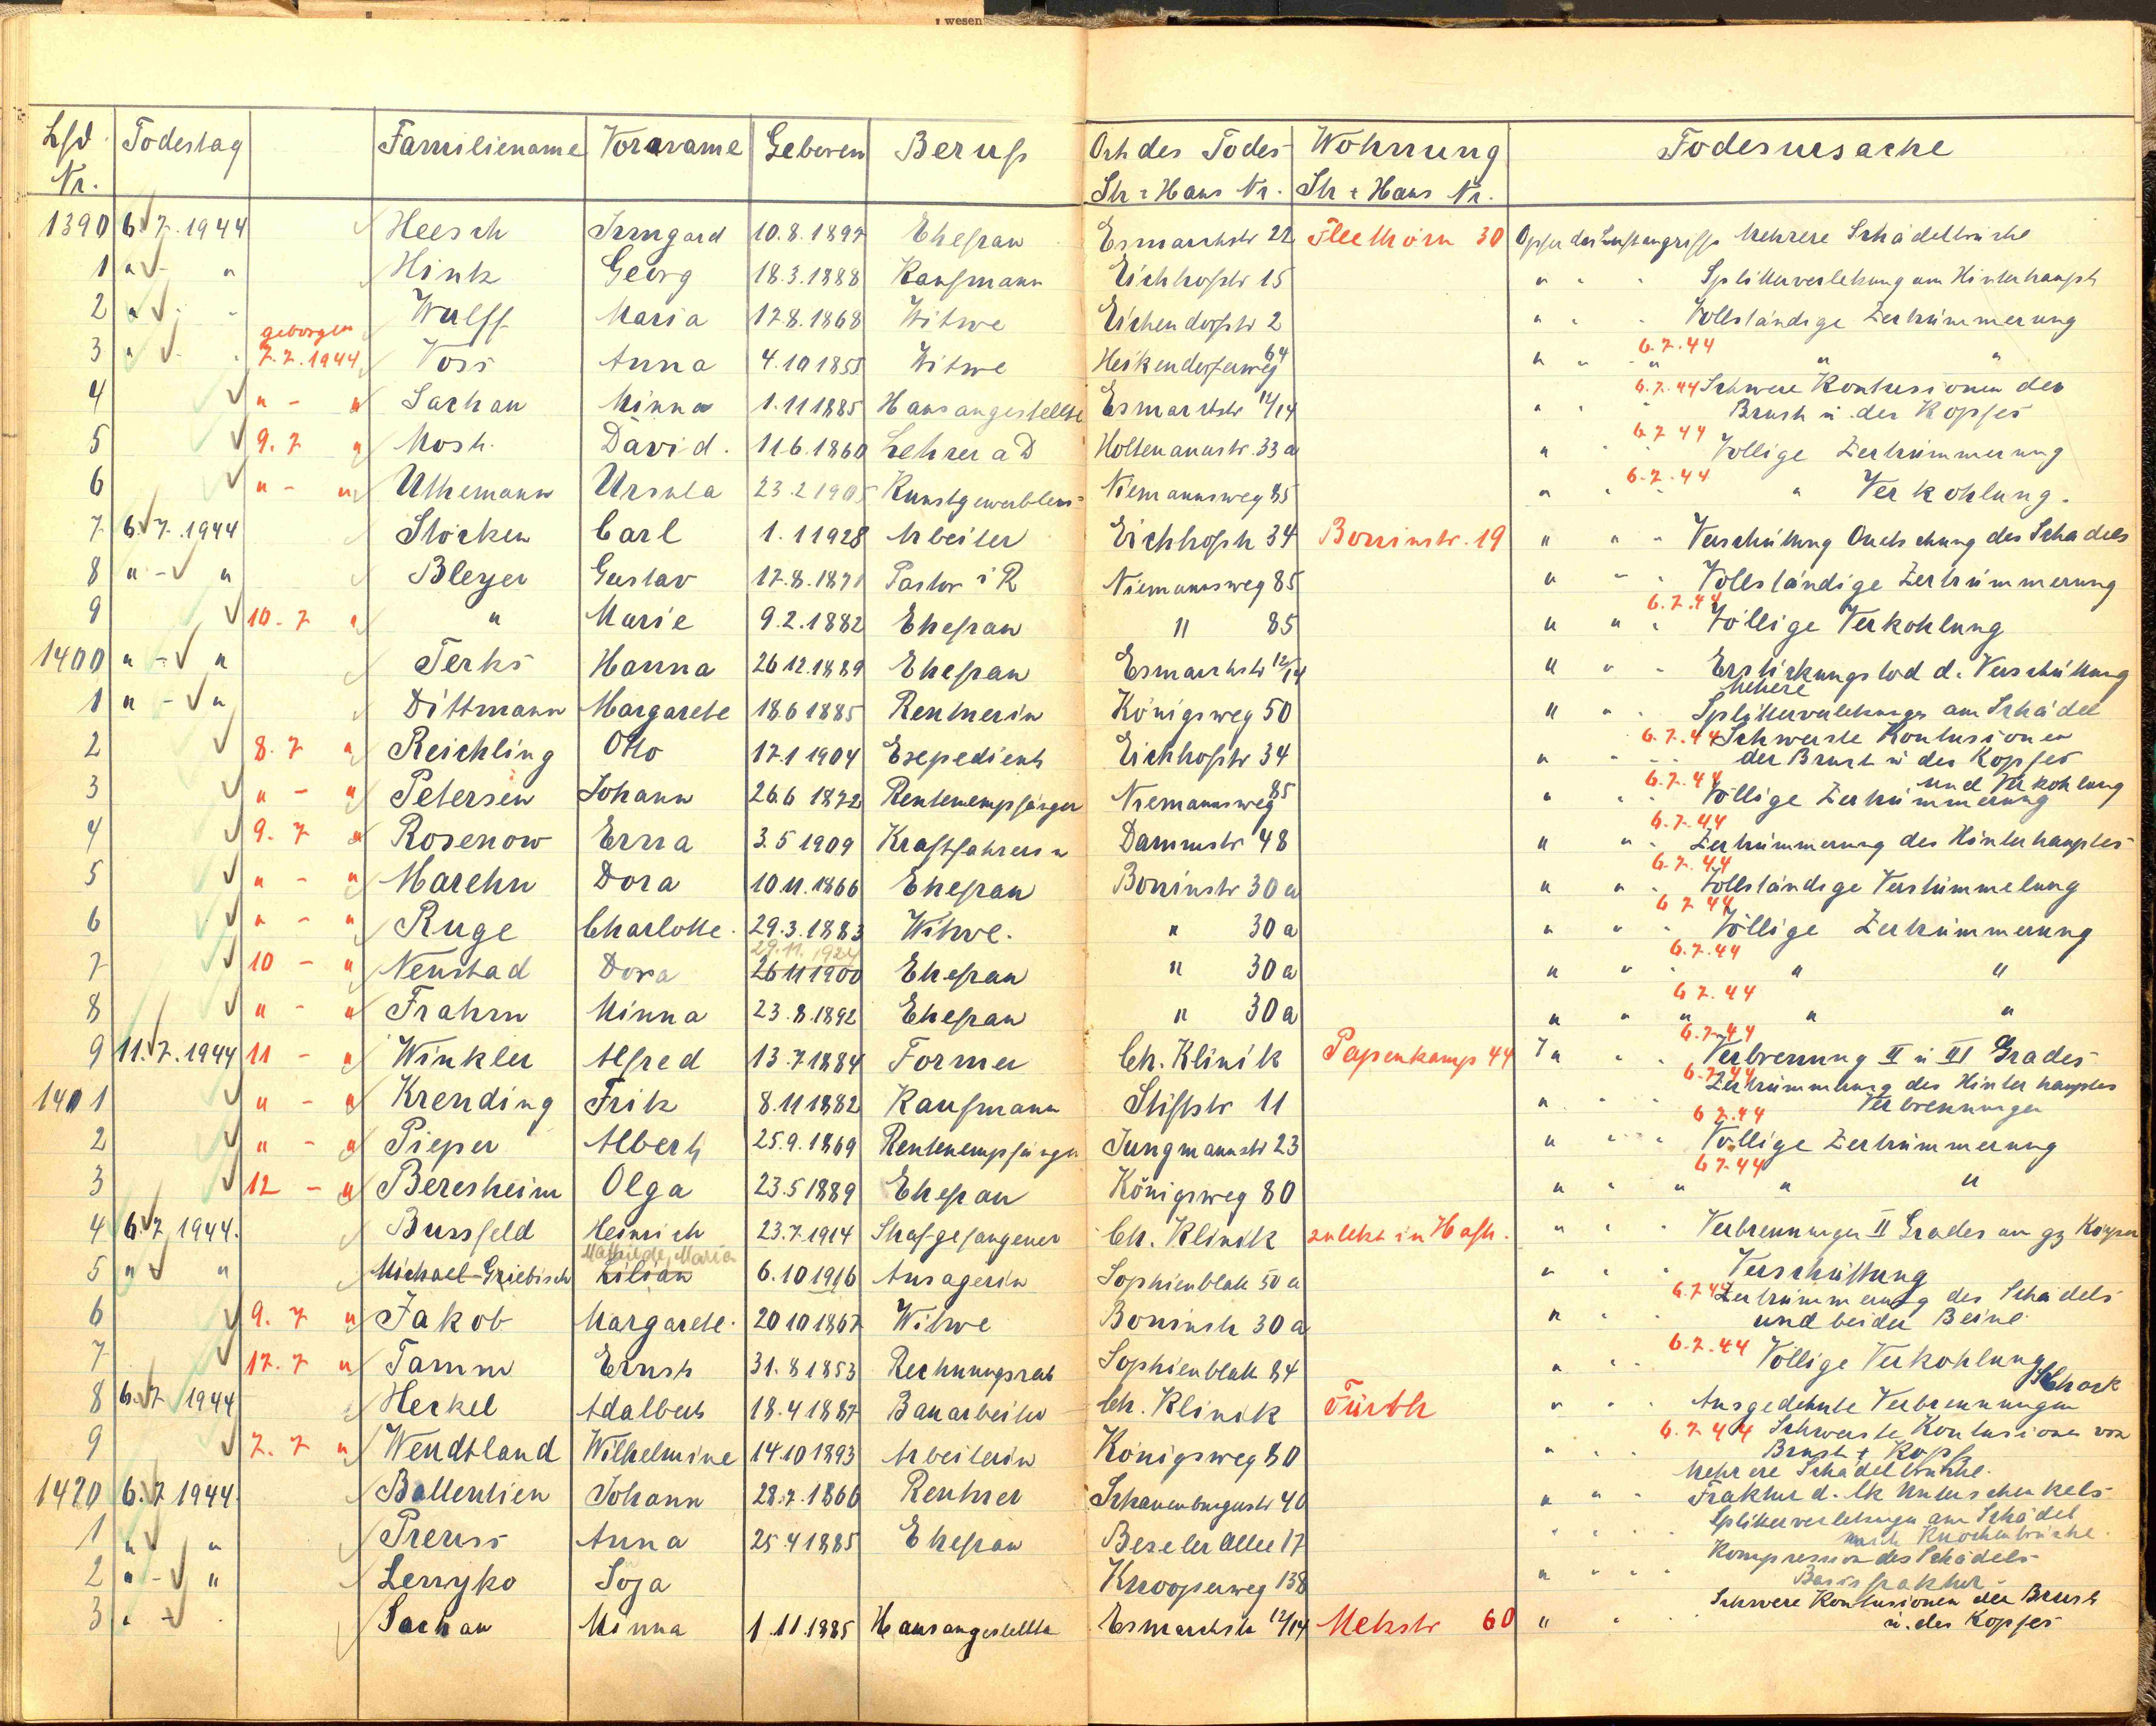 wesen
Lfd. Nr. Todestag Familienname Vorname Geboren Beruf Ort des Todes Str + Haus Nr. Wohnung Str + Haus Nr. Todesursache
1390 6.7.1944 Heesch Irmgard 10.8.1897 Ehefrau Esmarchstr 22 Fleethörn 30 Opfer des Luftangriffs Mehrere Schädelbrüche
1 " " Hink Georg 18.3.1888 Kaufmann Eichhofstr 15 " " " Splitterverletzung am Hinterhaupt
2 " " Wulff Maria 17.8.1868 Witwe Eichendorfstr 2 " " " Vollständige Zertrümmerung
3 " " geborgen 7.7.1944 Voss Anna 4.10 1855 Witwe Heikendorferweg 64 " " " 6.7.44 " "
4 " - " Sachau Minna 1.11 1885 Hausangestellte Esmarchstr 12/14 " " " 6.7.44 Schwere Kontusionen der
Brust u. des Kopfes
5 9.7 " Mosh. David. 11.6.1860 Lehrer a D Holtenauastr. 33 a " " " 6.7.44 Völlige Zertrümmerung
6 " - " Uthemann Ursula 23.2 1905 Kunstgewerblerin Niemannsweg 85 " " " 6.7.44 " Verkohlung.
7 6.7.1944 Storken Carl 1.1 1928 Arbeiter Eichhofstr 34 Boninstr. 19 " " " Verschüttung Quetschung des Schädels
8 " - " Bleyer Gustav 17.8.1871 Pastor i R Niemannsweg 85 " " " Vollständige Zertrümmerung
9 10.7 " " Marie 9.2.1882 Ehefrau " 85 " " " 6.7.44 Völlige Verkohlung
1400 " - " Jerks Hanna 26 12.1889 Ehefrau Esmarchstr 12/14 " " " Erstickungstod d. Verschüttung
1 " - " Dittmann Margarete 18.6 1885 Rentnerin Königsweg 50 " " " Mehere
Splitterverletzungen am Schädel
2 8.7 " Reichling Otto 17.1 1904 Exepedient Eichhofstr 34 " " " 6.7.44 Schwerste Kontusionen
der Brust u des Kopfes
3 " - " Petersen Johann 26.6 1872 Rentenempfänger Niemannsweg 85 " " " 6.7.44 Völlige Zertrümmerung und Verkohlung
4 9.7 " Rosenow Erna 3.5 1909 Kraftfahrerin Dammstr 48 " " " 6.7.44 Zertrümmerung des Hinterhauptes
5 " - " Marehn Dora 10.11.1866 Ehefrau Boninstr 30 a " " " 6.7.44 Vollständige Verstümmelung
6 " - " Ruge Charlotte. 29.3.1883 Witwe. " 30 a " " " 6 7 44 Völlige Zertrümmerung
7 10 - " Neustad Dora 29.11.1924 26 11 1900 Ehefrau " 30 a " " " 6.7.44 " "
8 " - " Frahm Minna 23.8.1892 Ehefrau " 30 a " " " 6 7.44 " "
9 11.7.1944 11 - " Winkler Alfred 13.7 1884 Former Ch. Klinik Papenkamp 44 Ja " " 6.7.44 Verbrennung II u III Grades
1401 " - " Krending Fritz 8.11 1882 Kaufmann Stiftstr 11 " " " 6.7.44 Zertrümmerung des Hinterhauptes
Verbrennungen
2 " - " Pieper Albert 25.9.1869 Rentenempfänger Jungmannstr 23 " " " 6 7.44 Völlige Zertrümmerung
3 12 - " Beresheim Olga 23.5 1889 Ehefrau Königsweg 80 " " " 6 7.44 " "
4 6.7 1944. Bussfeld Heinrich 23.7.1914 Strafgefangener Ch. Klinik zuletzt in Haft. " " " Verbrennungen II Grades am gz Körper
5 " " Michael-Griebisch Mathilde, Maria Lilian 6.10 1916 Ansagerin Sophienblatt 50 a " " " Verschüttung
6 9.7 " Jakob Margarete. 20 10 1867 Witwe Boninstr 30 a " " 6.7 44 Zertrümmerung des Schädels
und beider Beine.
7 17.7 " Tamm Ernst 31.8 1853 Rechnungsrat Sophienblatt 84 " " " 6.7.44 Völlige Verkohlung
8 6.7 1944 Herkel Adalbert 18.4 1887 Bauarbeiter Ch. Klinik Fürth " " " Ausgedehnte Verbrennungen Schock
9 7.7 " Wendtland Wilhelmine 14.10 1893 Arbeiterin Königsweg 80 " " " 6.7 44 Schwerste Kontusionen von
Brust + Kopf
1420 6.7 1944. Ballentien Johann 28.7.1866 Rentner Schauenburgerstr 40 " " " Mehrere Schädelbrüche.
Fraktur d. lk Unterschenkels
1 " " Preuss Anna 25 4 1885 Ehefrau Beseler Allee 17 " " " Splitterverletzungen am Schädel
Knochenbrüche.
2 " - " Lerryko Soja Knooperweg 138 " " " Kompression des Schädels
Basisfraktur
3 " - Sachau Minna 1.11.1885 Hausangestellte Esmarchstr 12/14 Metzstr 60 " " Schwere Kontusionen der Brust
u. des Kopfes